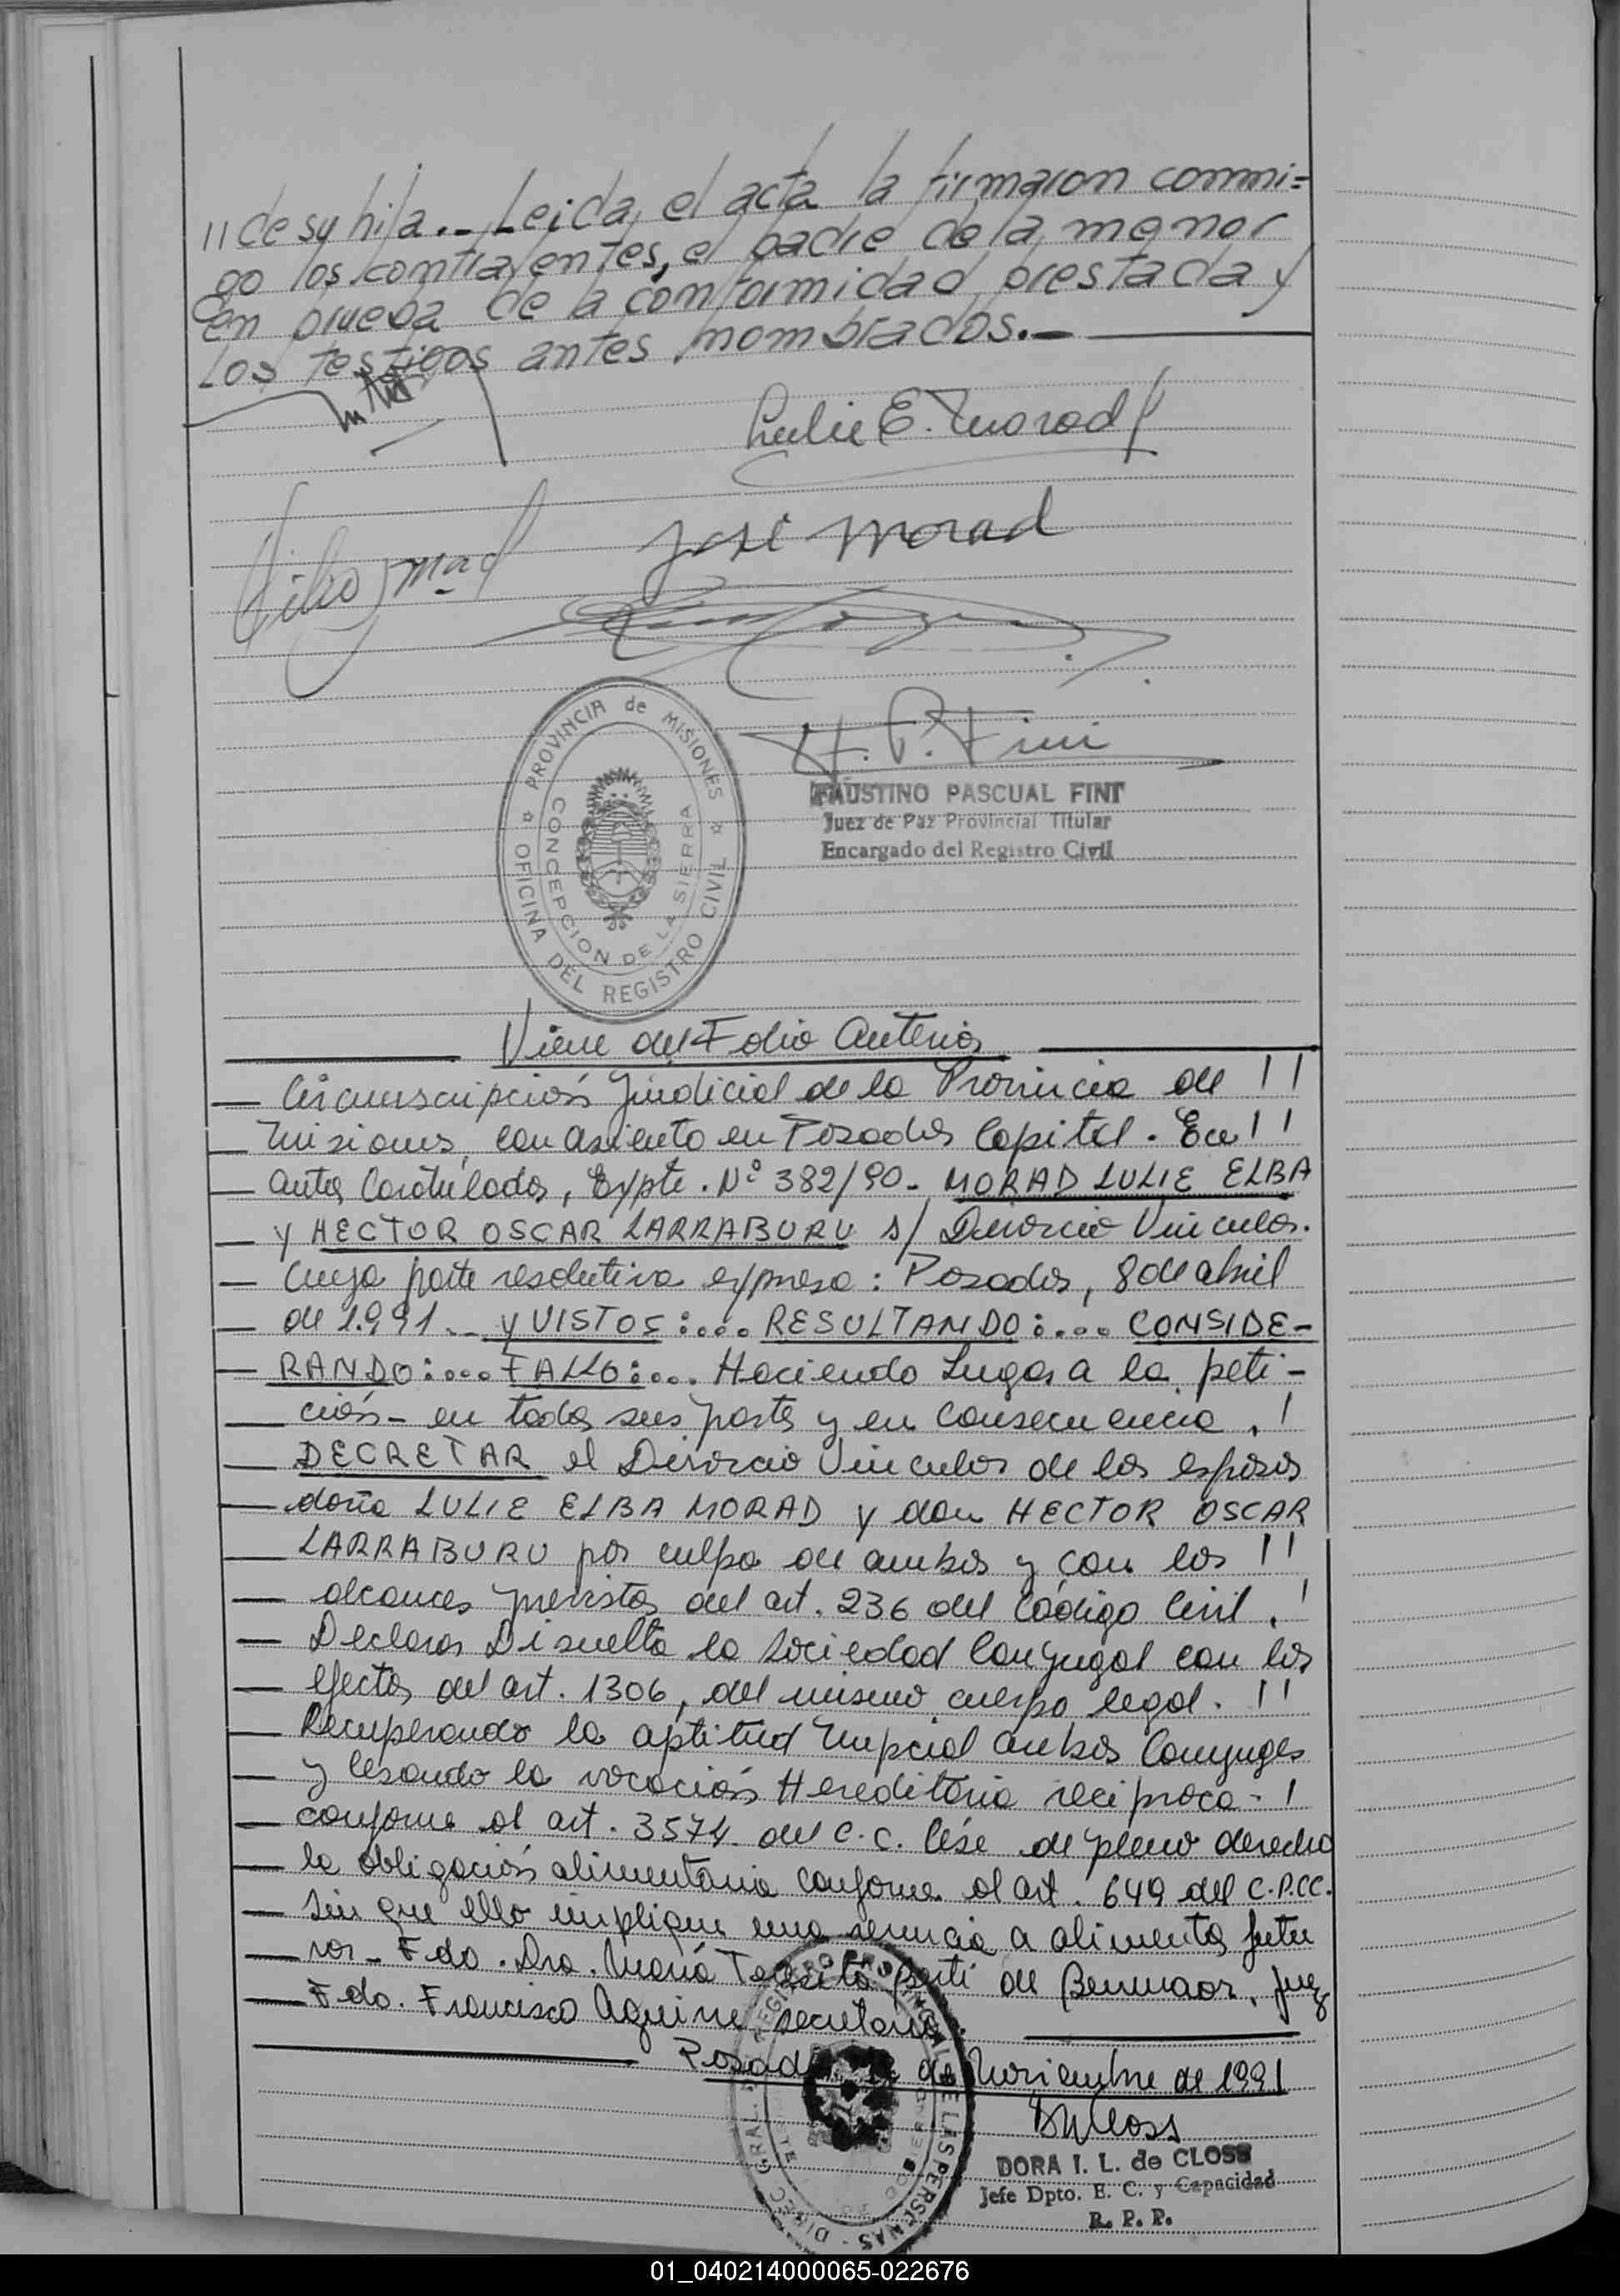 // de su hija.._ Leida el acta la firmaron conmi=
go los contrayentes, el padre de la menor
en prueba de la conformidad prestada y
los testigos antes nombrados._
Lulie E. Morad
José Morad
H. P. Fini
FAUSTINO PASCUAL FINI
Juez de Paz Provincial Titular
Encargado del Registro Civil
PROVINCIA de MISIONES
OFICINA DEL REGISTRO CIVIL
CONCEPCION DE LA SIERRA
Viene del Folio Anterior
— Circunscripción Judicial de la Provincia de !!
— Misiones, con asiento en Posadas Capital. En !!
— autos Caratulados, Expte. Nº 382/90 - MORAD LULIE ELBA
— y HECTOR OSCAR LARRABURU s/ Divorcio Vincular.
— Cuya parte resolutiva expresa: Posadas, 8 de abril
— de 1.991._ y VISTOS:.... RESULTANDO:.... CONSIDE-
— RANDO:.... FALLO:.... Haciendo Lugar a la peti-
— ción - en todas sus partes y en consecuencia, !
— DECRETAR el Divorcio Vincular de los esposos
— doña LULIE ELBA MORAD y don HECTOR OSCAR
— LARRABURU por culpa de ambos y con los !!
— alcances previstos del art. 236 del Código Civil. !
— Declarar Disuelta la Sociedad Conyugal con los
— efectos del art. 1306, del mismo cuerpo legal. !!
— Recuperando la aptitud Nupcial ambos Conyuges
— y Cesando la vocación Hereditaria reciproca - !
— conforme al art. 3574 del C.C. Cése de pleno derecho
— la obligación alimentaria conforme al art. 649 del C.P.CC.
— Sin que ello implique una renuncia a alimentos futu
— ros - Fdo. Dra. María Teresita Berti de Benmaor, Juez
— Fdo. Francisco Aguirre secretario.
Posadas de Noviembre de 1991
DORA I. L. de CLOSS
Jefe Dpto. E. C. y Capacidad
R. P. P.
01_040214000065-022676